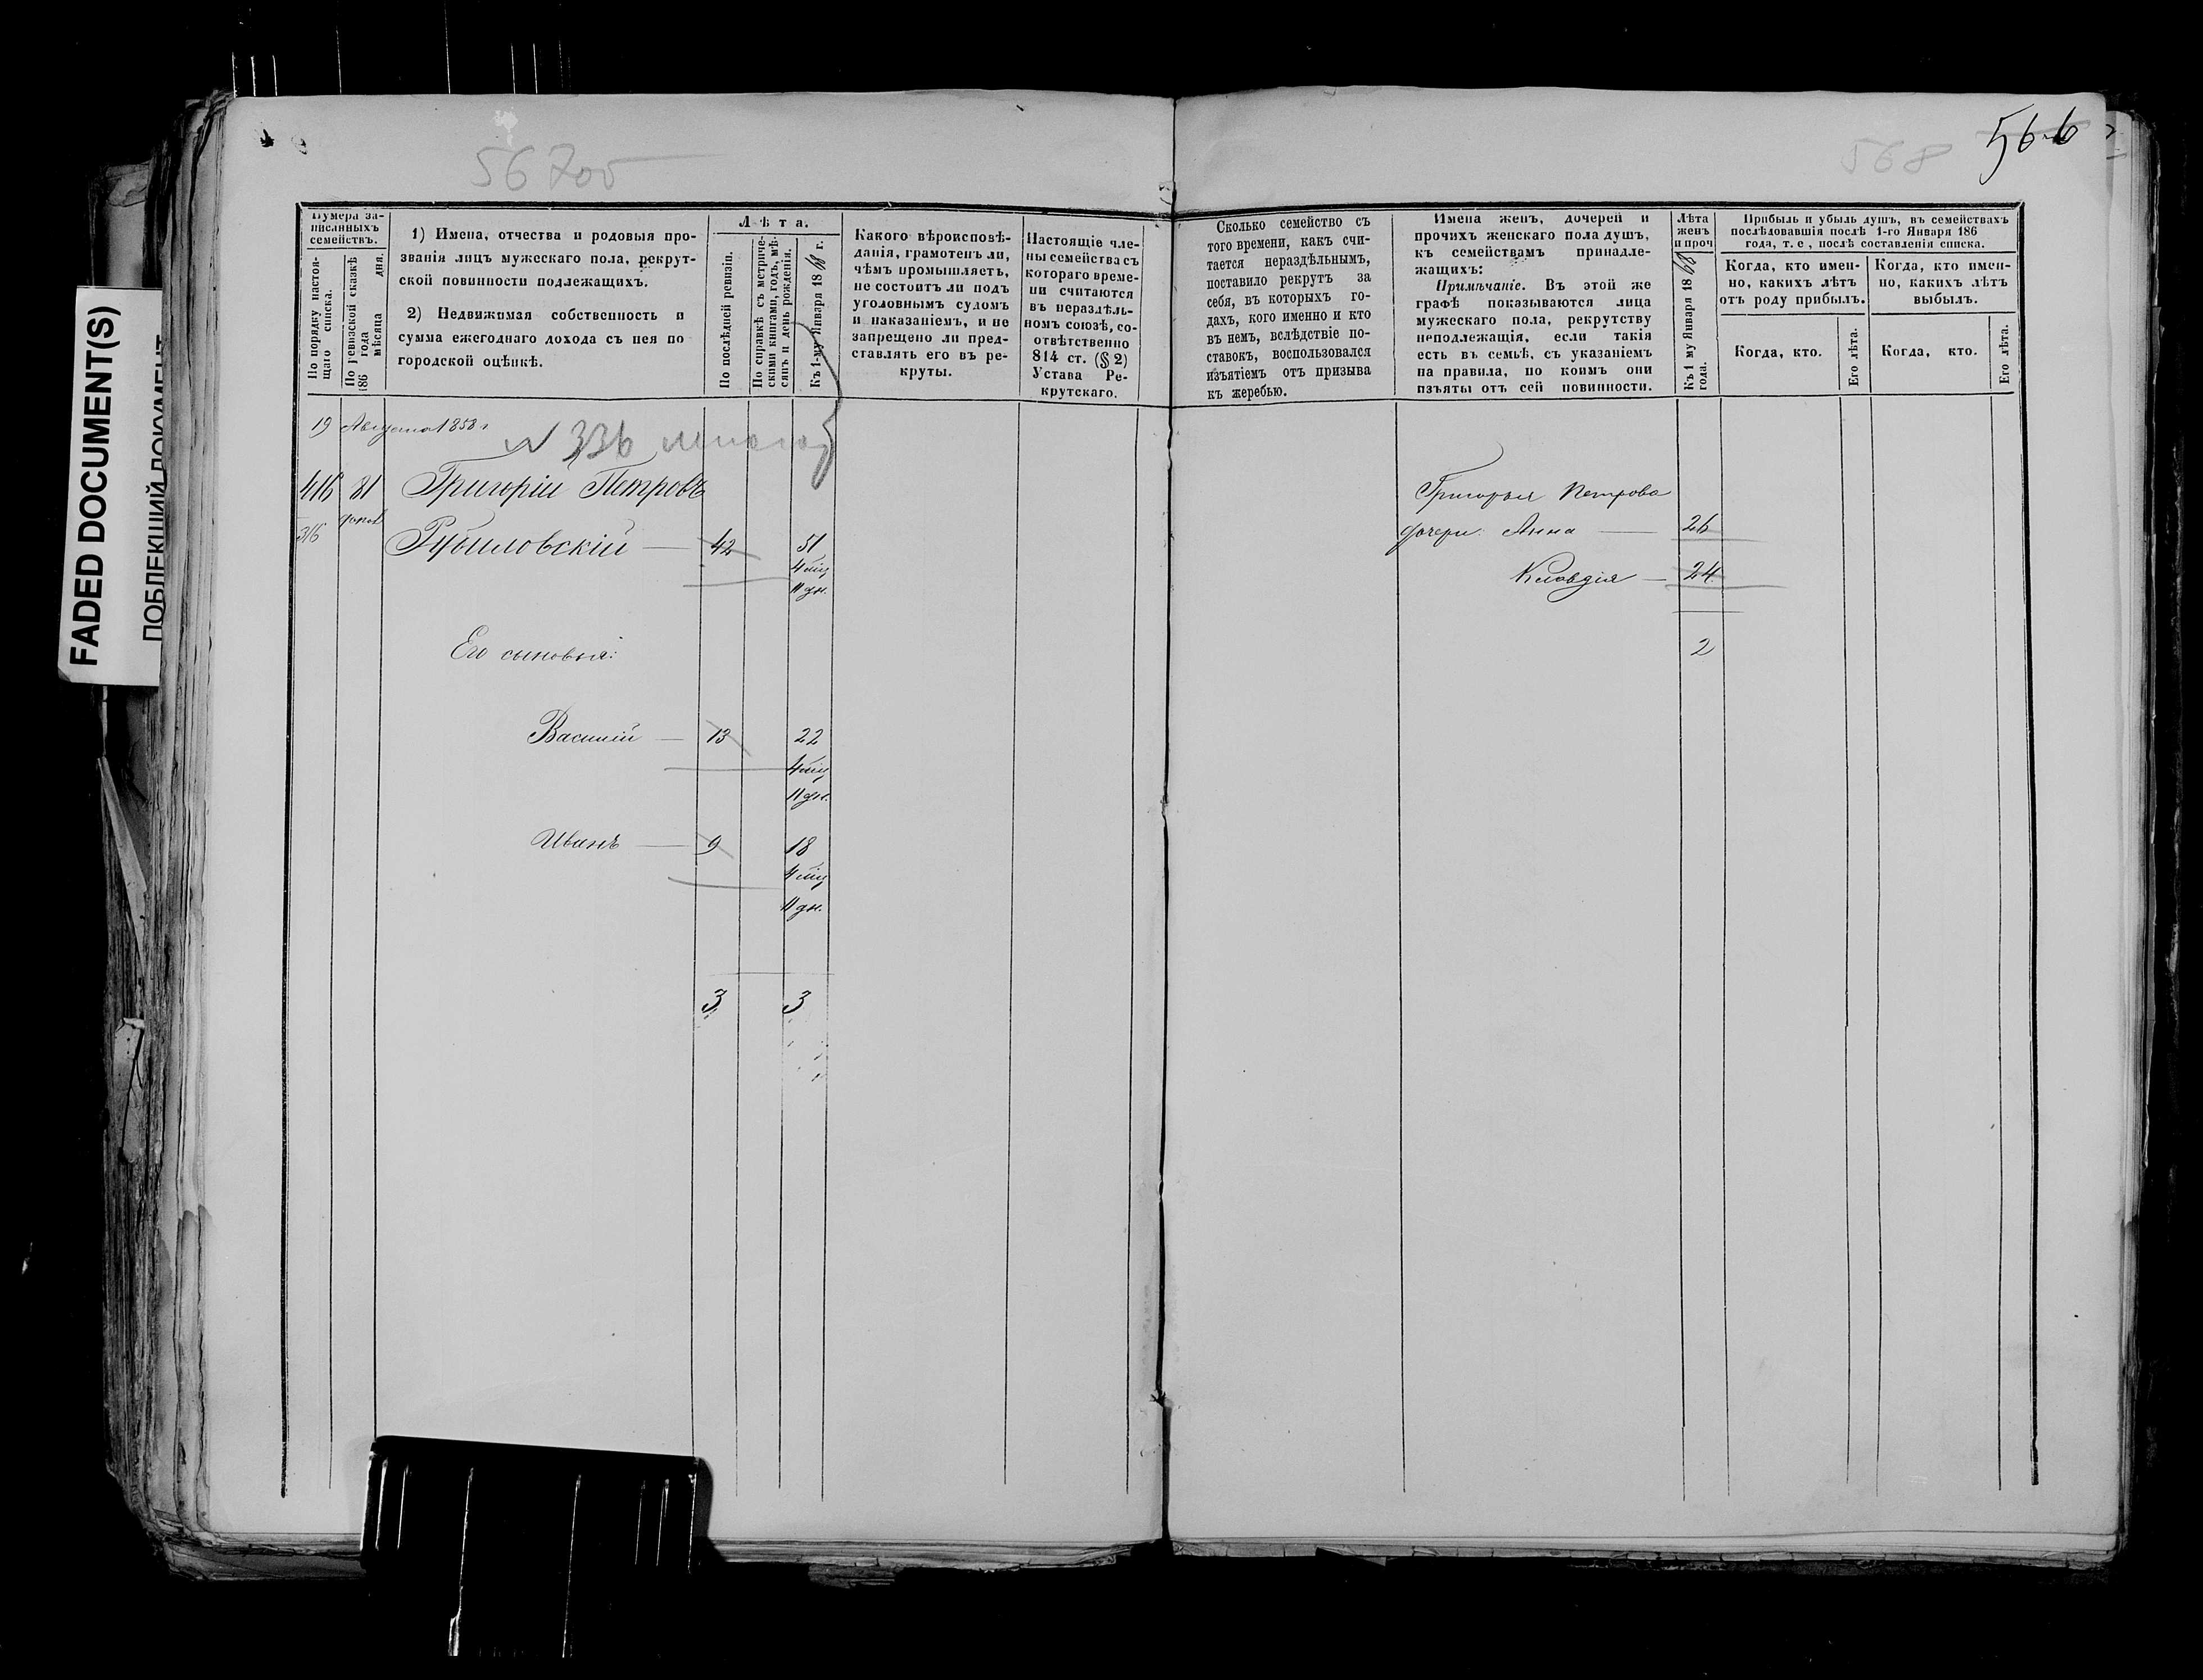 FADED DOCUMENT(S)
ПОБЛЕКШИЙ ДОКУМЕНТ
567об
568
566
Нумера за-
писанныхъ
семействъ.
По порядку настоя-
щаго списка.
По ревизской сказкѣ
186 года
мѣсяца дня.
1) Имена, отчества и родовыя про-
званія лицъ мужескаго пола, рекрут-
ской повинности подлежащихъ.
2) Недвижимая собственность и
сумма ежегоднаго дохода съ нея по
городской оцѣнкѣ.
Лѣта.
По послѣдней ревизіи.
По справкѣ съ метриче-
скими книгами, годъ, мѣ-
сяцъ и день рожденія.
Къ 1-му Января 1868 г.
Какого вѣроисповѣ-
данія, грамотенъ ли,
чѣмъ промышляетъ,
не состоитъ ли подъ
уголовнымъ судомъ
и наказаніемъ, и не
запрещено ли пред-
ставлять его въ ре-
круты.
Настоящіе чле-
ны семейства съ
котораго време-
ни считаются
въ нераздѣль-
номъ союзѣ, со-
отвѣтственно
814 ст. (§ 2)
Устава Ре-
крутскаго.
Сколько семейство съ
того времени, какъ счи-
тается нераздѣльнымъ,
поставило рекрутъ за
себя, въ которыхъ го-
дахъ, кого именно и кто
въ немъ, вслѣдствіе по-
ставокъ, воспользовался
изъятіемъ отъ призыва
къ жеребью.
Имена женъ, дочерей и
прочихъ женскаго пола душъ,
къ семействамъ принадле-
жащихъ:
Примѣчаніе. Въ этой же
графѣ показываются лица
мужескаго пола, рекрутству
неподлежащія, если такія
есть въ семьѣ, съ указаніемъ
на правила, по коимъ они
изъяты отъ сей повинности.
Лѣта
женъ
и проч
Къ 1 му Января 1868
года.
Прибыль и убыль душъ, въ семействахъ
послѣдовавшія послѣ 1-го Января 186
года, т. е., послѣ составленія списка.
Когда, кто имен-
но, какихъ лѣтъ
отъ роду прибылъ.
Когда, кто имен-
но, какихъ лѣтъ
выбылъ.
Когда, кто.
Его лѣта.
Когда, кто.
Его лѣта.
19 Августа 1858 г
N 336
416 81 Григорій Петровъ
316
42 51
4 мѣц
11 дн.
Его сыновья:
Василій — 13 22
4 мѣц
11 дн.
Иванъ — 9 18
4 мѣц
11 дн.
3 3
Григорья Петрова
дочери: Анна — 26
Клавдія — 24
2